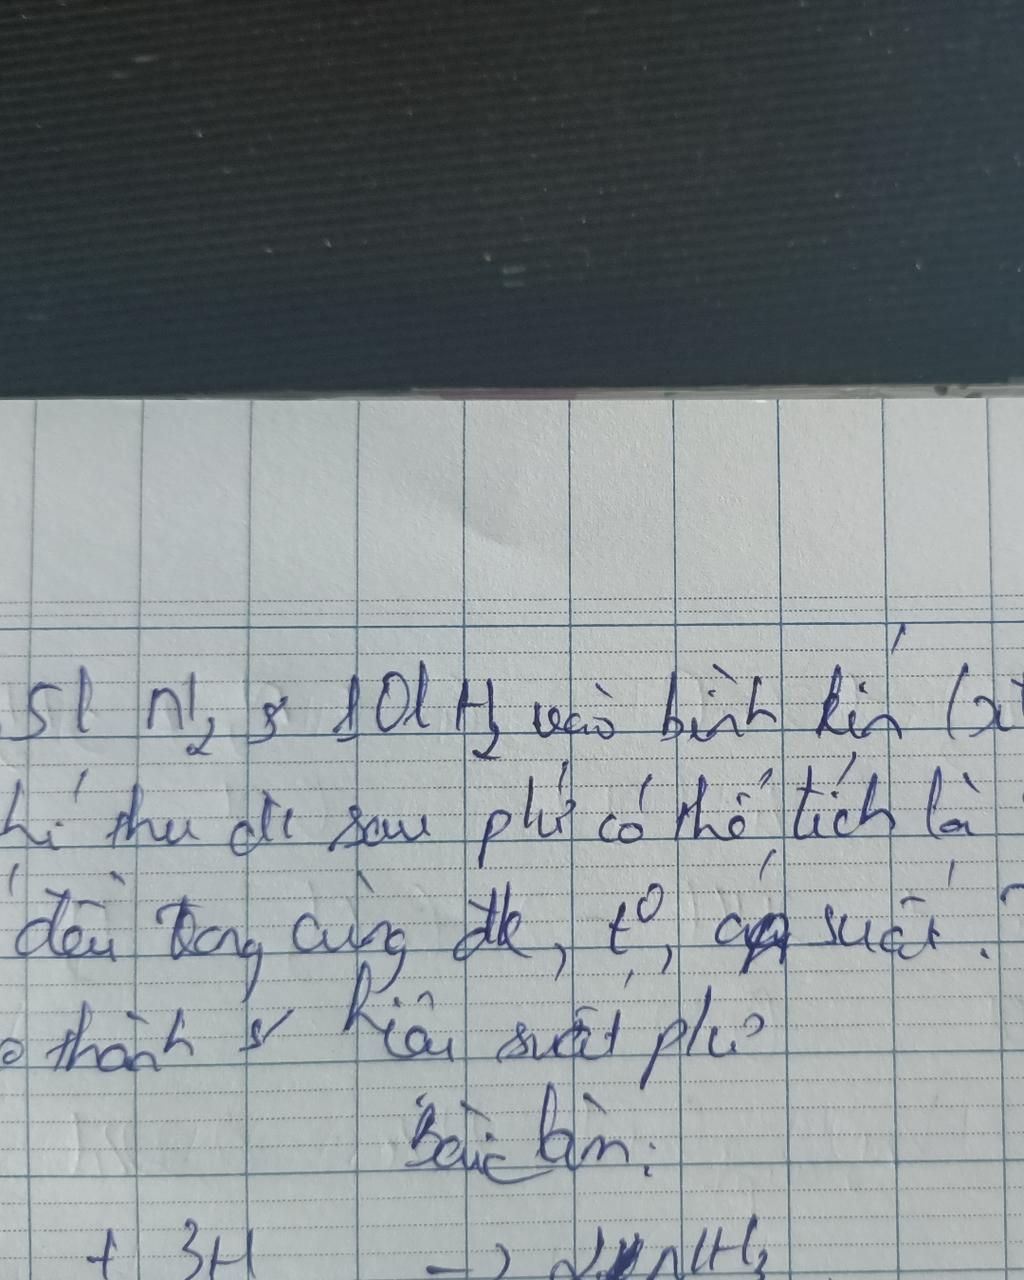 5l N₂ & 10l H₂ vào bình kín (xt
hí thu đc sau phứ có thể tích là
đều trong cùng đk, t⁰, áp suất.
o thành & hiệu suất phứ
Bài làm:
+ 3H → 2NH₃